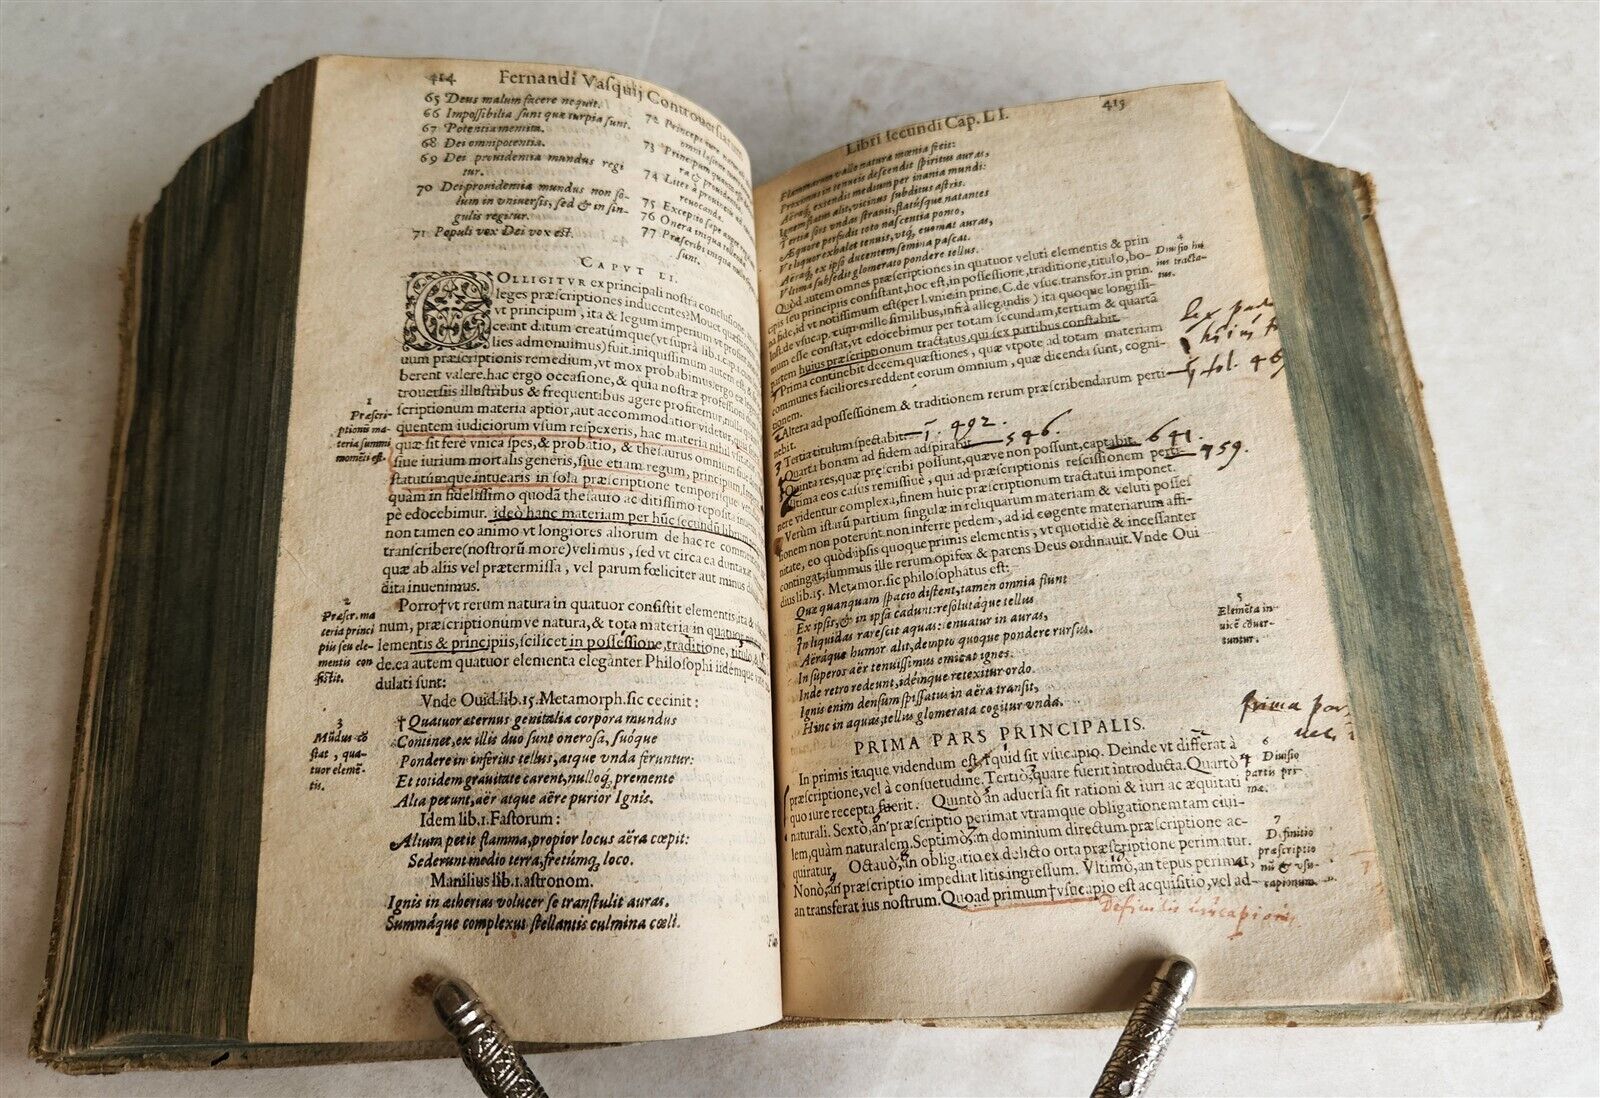 414 Fernandi Vasquij Controuersiarum
65 Deus malum facere nequit.
66 Impossibilia sunt quæ turpia sunt.
67 Potentia mentita.
68 Dei omnipotentia.
69 Dei prouidentia mundus regi
tur.
70 Dei prouidentia mundus non so-
lum in vniuersis, sed & in sin-
gulis regitur.
71 Populi vox Dei vox est.
72 Principi
73 Principum
74 Litet à
reuocanda.
75 Exceptio sæpe
76 Onera iniqua
77 Præscribi iniqua
sunt.
CAPVT LI.
COLLIGITVR ex principali nostra conclusione,
leges præscriptiones inducentes? Mouet
vt principum, ita & legum imperium
ceant datum creatúmque (vt suprà lib.1.
lies admonuimus) fuit. iniquissimum autem est,
uum præscriptionis remedium, vt mox probabimus, ergo
berent valere. hac ergo occasione, & quia nostræ
trouersiis illustribus & frequentibus agere profitemur,
1
Præscri-
ptionis ma-
teria summi
momēti est.
scriptionum materia aptior, aut accommodatior videtur,
quentem iudiciorum vsum respexeris, hac materia nihil
quæ sit ferè vnica spes, & probatio, & thesaurus omnium
siue iurium mortalis generis, siue etiam regum, principum
statutúmque intuearis in sola præscriptione temporisque
quàm in fidelissimo quodā thesauro ac ditissimo reposita
pè edocebimur. ideò hanc materiam per hūc secundū
non tamen eo animo vt longiores aliorum de hac re
transcribere (nostrorū more) velimus, sed vt circa ea duntaxat
quæ ab aliis vel prætermissa, vel parum fœliciter aut minus
dita inuenimus.
2
Præscr. ma
teria princi
piis seu ele-
mentis con
sistit.
Porro† vt rerum natura in quatuor consistit elementis, ita &
num, præscriptionum ve natura, & tota materia in quatuor
lementis & principiis, scilicet in possessione, traditione, titulo,
de. ea autem quatuor elementa elegāter Philosophi iidémque
dulati sunt:
Vnde Ouid. lib. 15. Metamorph. sic cecinit:
3
Mūdus cō
stat, qua-
tuor elemē-
tis.
† Quatuor æternus genitalia corpora mundus
Continet, ex illis duo sunt onerosa, suóque
Pondere in inferius tellus, atque vnda feruntur:
Et totidem grauitate carent, nulloq, premente
Alta petunt, aër atque aëre purior Ignis.
Idem lib. 1. Fastorum:
Altum petit flamma, propior locus aëra cœpit:
Sederunt medio terra, fretúmq, loco.
Manilius lib. 1. astronom.
Ignis in ætherias volucer se transtulit auras.
Summáque complexus stellantis culmina cœli.
Fla
Libri secundi Cap. LI. 415
Flammarum vallo natura mœnia fecit:
Proximus in tenueis descendit spiritus auras,
Aëraq, extendit medium per inania mundi:
Ignem flatus alit, vicinus subditus astris.
Tertia sors vndas strauit, fluctúsque natantes
Æquore perfudit toto nascentia ponto,
Vt liquor exhalet tenuis, vtq, euomat auras,
Aëraq, ex ipso ducentem semina pascat.
Vltima subsedit glomerato pondere tellus.
4
Diuisio hu
ius tracta-
tus.
Quòd autem omnes præscriptiones in quatuor veluti elementis & prin
cipiis seu principiis consistant, hoc est, in possessione, traditione, titulo, bo-
na fide, ad vt notissimum est (per l. vnic. in princ. C. de vsuc. transfor. in prin.
Inst. de vsucap. cum mille similibus, infrà allegandis) ita quoque longissi-
mum esse constat, vt edocebimur per totam secundam, tertiam & quartā
partem huius præscriptionum tractatus, qui sex partibus constabit.
Prima continebit decem quæstiones, quæ vtpote ad totam materiam
communes faciliores reddent eorum omnium, quæ dicenda sunt, cogni-
tionem.
hiim
fol. 46
2 Altera ad possessionem & traditionem rerum præscribendarum perti-
nebit.
3 Tertia titulum spectabit. 492.
Quarta bonam ad fidem adspirabit. 546.
Quinta res, quæ præscribi possunt, quæve non possunt, captabit. 641.
Vltima eos casus remissiuè, qui ad præscriptionis rescissionem perti- 759.
nere videntur complexa, finem huic præscriptionum tractatui imponet.
Verùm istarū partium singulæ in reliquarum materiam & veluti posses
sionem non poterunt non inferre pedem, ad id cogente materiarum affi-
nitate, eo quòd ipsis quoque primis elementis, vt quotidiè & incessanter
contingat, summus ille rerum opifex & parens Deus ordinauit. Vnde Oui
dius lib. 15. Metamor. sic philosophatus est:
5
Elemēta in-
uicē cōuer-
tuntur.
Quæ quanquam spacio distent, tamen omnia fiunt
Ex ipsis, & in ipsa cadunt: resolutáque tellus
In liquidas rarescit aquas: tenuatur in auras,
Aëráque humor alit, dempto quoque pondere rursus.
In superos aër tenuissimus emicat ignes.
Inde retro redeunt, idémque retexitur ordo.
Ignis enim densum spissatus in aëra transit,
Hinc in aquas, tellus glomerata cogitur vnda.
Prima par
PRIMA PARS PRINCIPALIS.
6
Diuisio
partis pri-
mæ.
In primis itaque videndum est, quid sit vsucapio. Deinde vt differat à
præscriptione, vel à consuetudine. Tertiò, quare fuerit introducta. Quartò
quo iure recepta fuerit. Quintò an aduersa sit rationi & iuri ac æquitati
naturali. Sextò, an præscriptio perimat vtramque obligationem tam ciui-
lem, quàm naturalem. Septimò, an dominium directum præscriptione ac-
quiratur. Octauò, an obligatio ex delicto orta præscriptione perimatur.
Nonò, an præscriptio impediat litis ingressum. Vltimò, an tepus perimat,
an transferat ius nostrum. Quoad primum† vsucapio est acquisitio, vel ad-
7
Definitio
præscriptio
nū & vsu-
capionum.
Definitio usucapionis